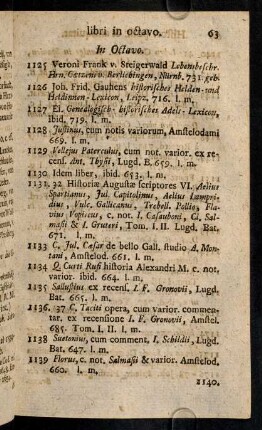 libri in octavo. 63
In Octavo.
1125 Veroni Frank v. Steigerwald Lebensbeschr.
Hrn. Goezens v. Berlichingen, Nürnb. 731. geb.
1126 Joh. Frid. Gauhens historisches Helden- und
Heldinnen-Lexicon, Leipz. 716. l. m.
1127 Ej. Genealogisch-historisches Adels-Lexicon,
ibid. 719. l. m.
1128 Justinus, cum notis variorum, Amstelodami
669. l. m.
1129 Vellejus Paterculus, cum not. varior. ex re-
cens. Ant. Thysii, Lugd. B. 659. l. m.
1130 Idem liber, ibid. 653. l. m.
1131. 32 Historiæ Augustæ scriptores VI. Aelius
Spartianus, Jul. Capitolinus, Aelius Lampri-
dius, Vulc. Gallicanus, Trebell. Pollio, Fla-
vius Vopiscus, c. not. I. Casauboni, Cl. Sal-
masii & I. Gruteri, Tom. I. II Lugd. Bat.
671. l. m.
1133 C. Jul. Cæsar de bello Gall. studio A. Mon-
tani, Amstelod. 661. l. m.
1134 Q. Curti Rufi historia Alexandri M. c. not.
varior. ibid. 664. l. m.
1135 Sallustius ex recens. I. F. Gronovii, Lugd.
Bat. 665. l. m.
1136. 37 C. Taciti opera, cum varior. commen-
tar. ex recensione I. F. Gronovii, Amstel.
685. Tom. I. II. l. m.
1138 Suetonius, cum comment. I. Schildii, Lugd.
Bat. 647. l. m.
1139 Florus, c. not. Salmasii & varior. Amstelod.
660. l. m.
1140.